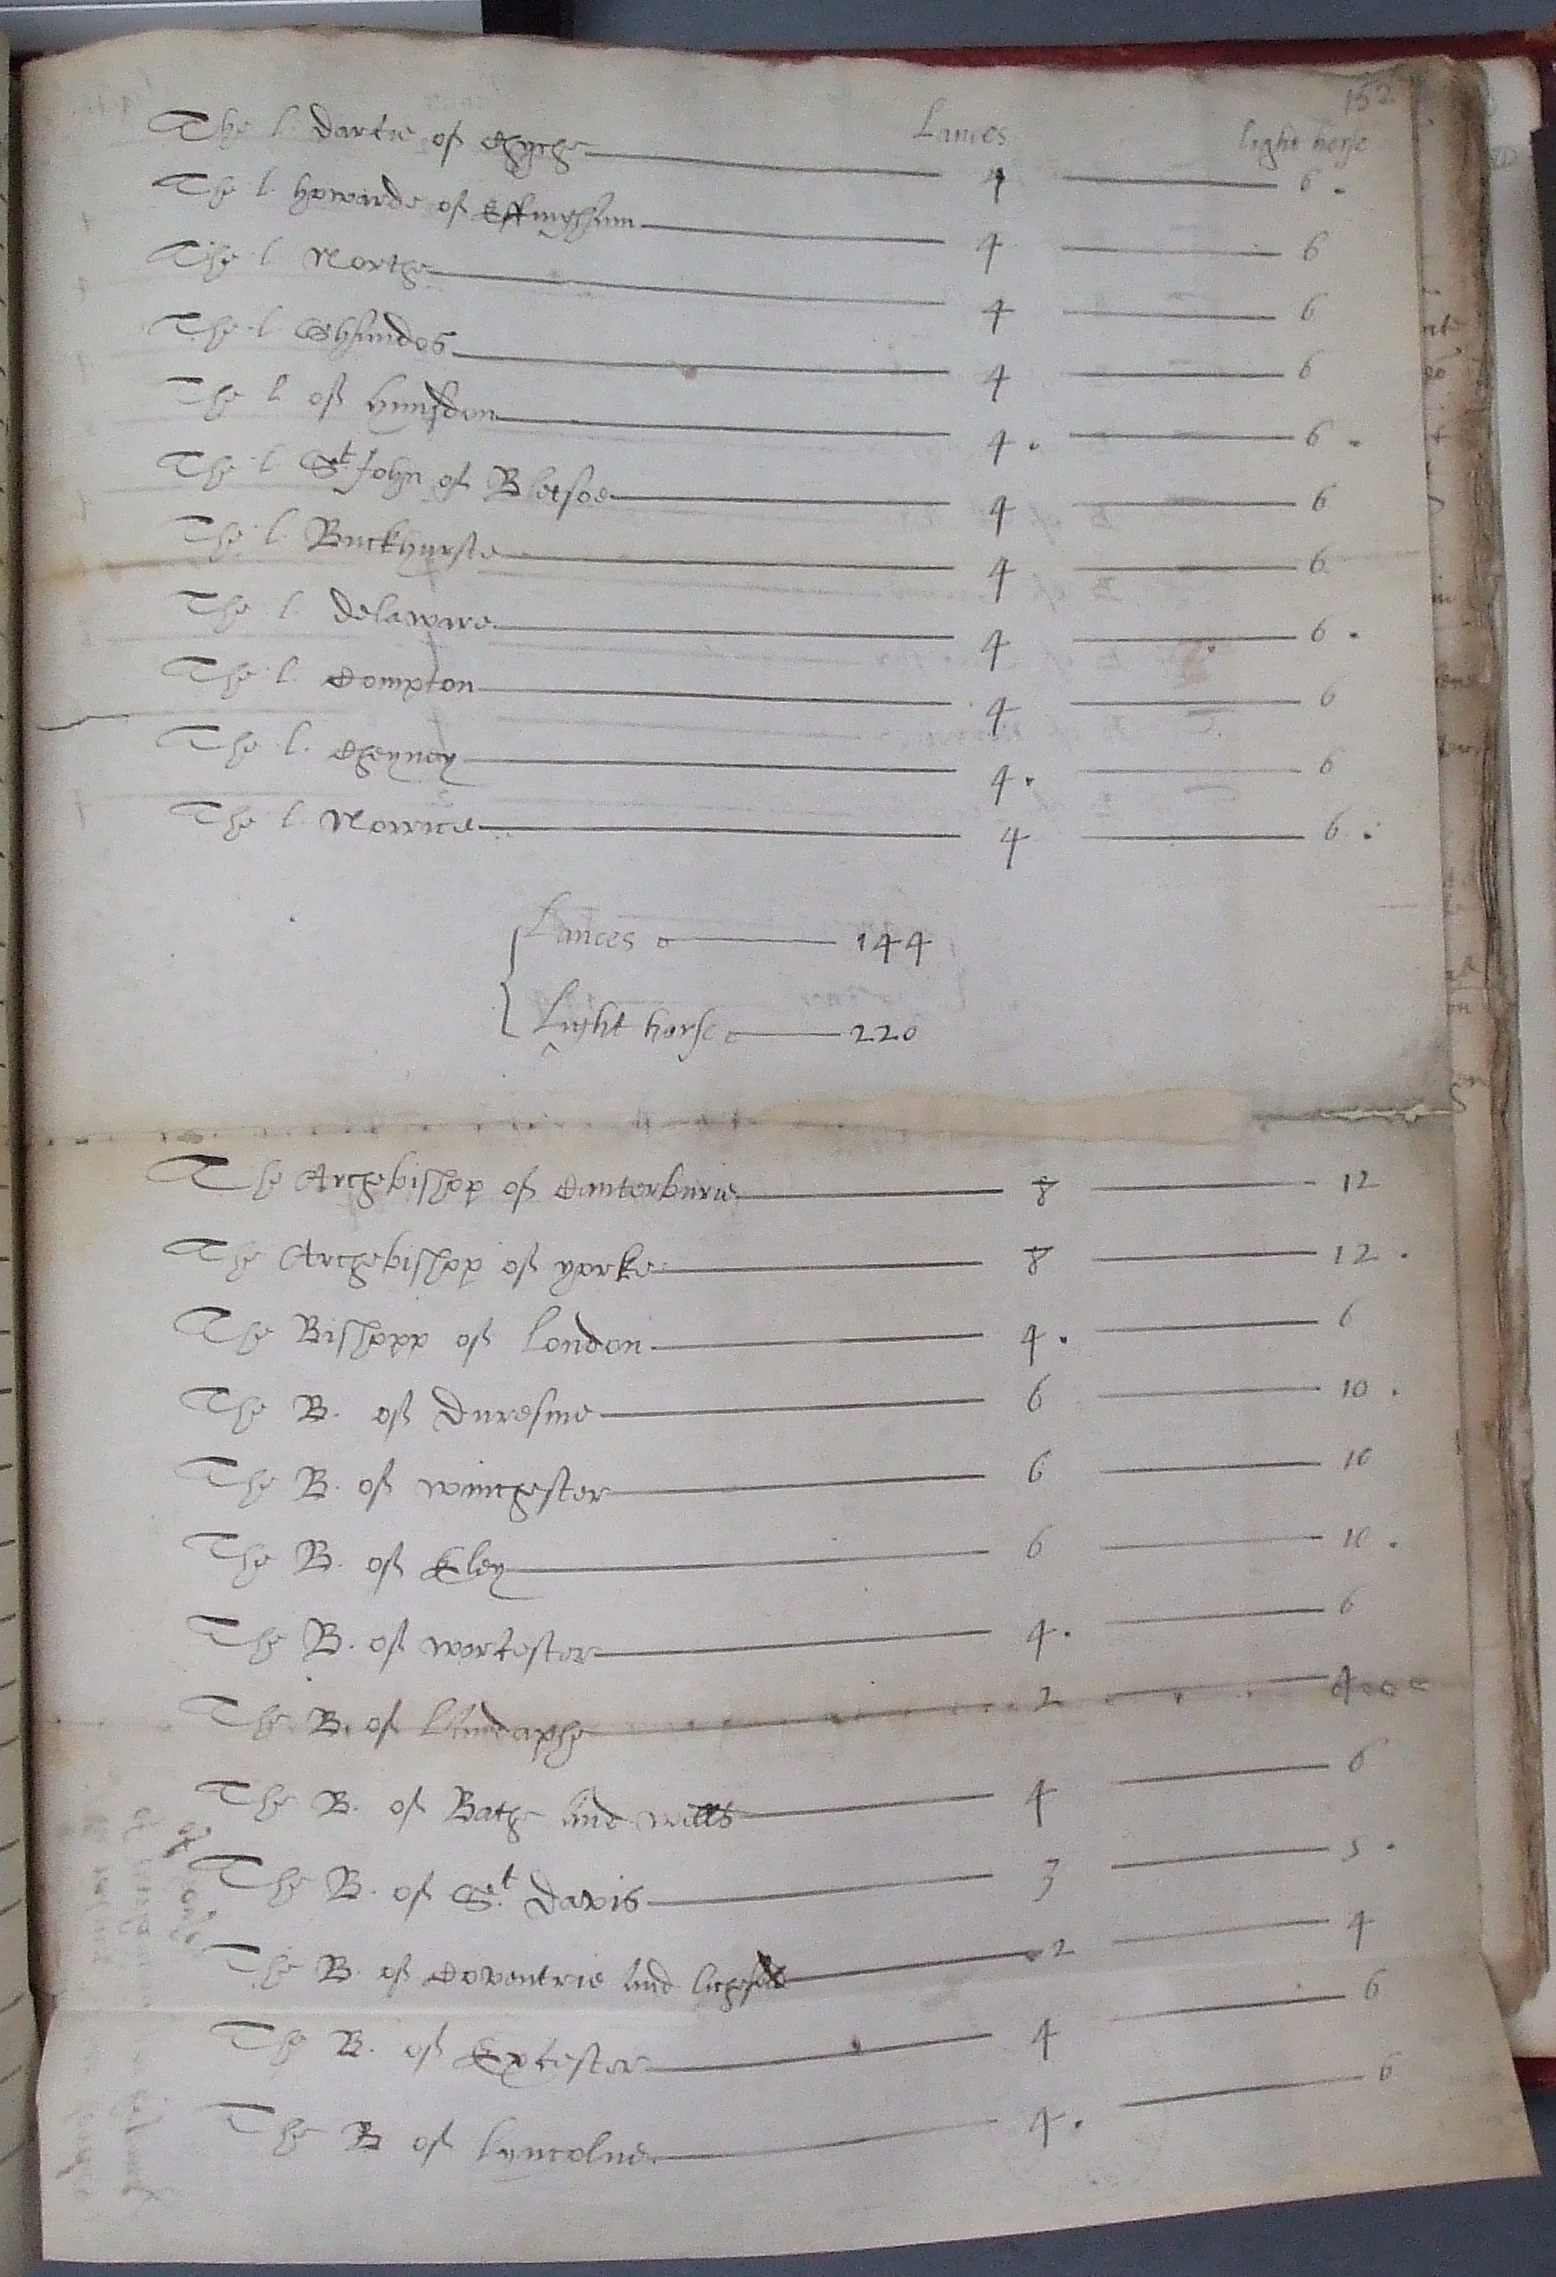 152
Lances light horse
The l. Darcie of Chyche 4 6.
The l. Howarde of Effingham 4 6
The l. Northe 4 6
The l. Chandos 4 6
The l. of Hunsdon 4. 6.
The l. St John of Bletsoe 4 6
The l. Buckhurste 4 6
The l. Delaware 4 6.
The l. Compton 4 6
The l. Cheyney 4. 6
The l. Norrice 4 6.
Lances 144
Light horse 220
The Archebishop of Canterburie 8 12
The Archebishop of Yorke 8 12.
The Bishopp of London 4. 6
The B. of Duresme 6 10.
The B. of Winchester 6 10
The B. of Eley 6 10.
The B. of Worcester 4. 6
The B. of Landaphe 2 4
The B. of Bathe and Wells 4 6
The B. of St Davis 3 5.
The B. of Coventrie and 2 4
The B. of Excester 4 6
The B of Lyncolne 4. 6